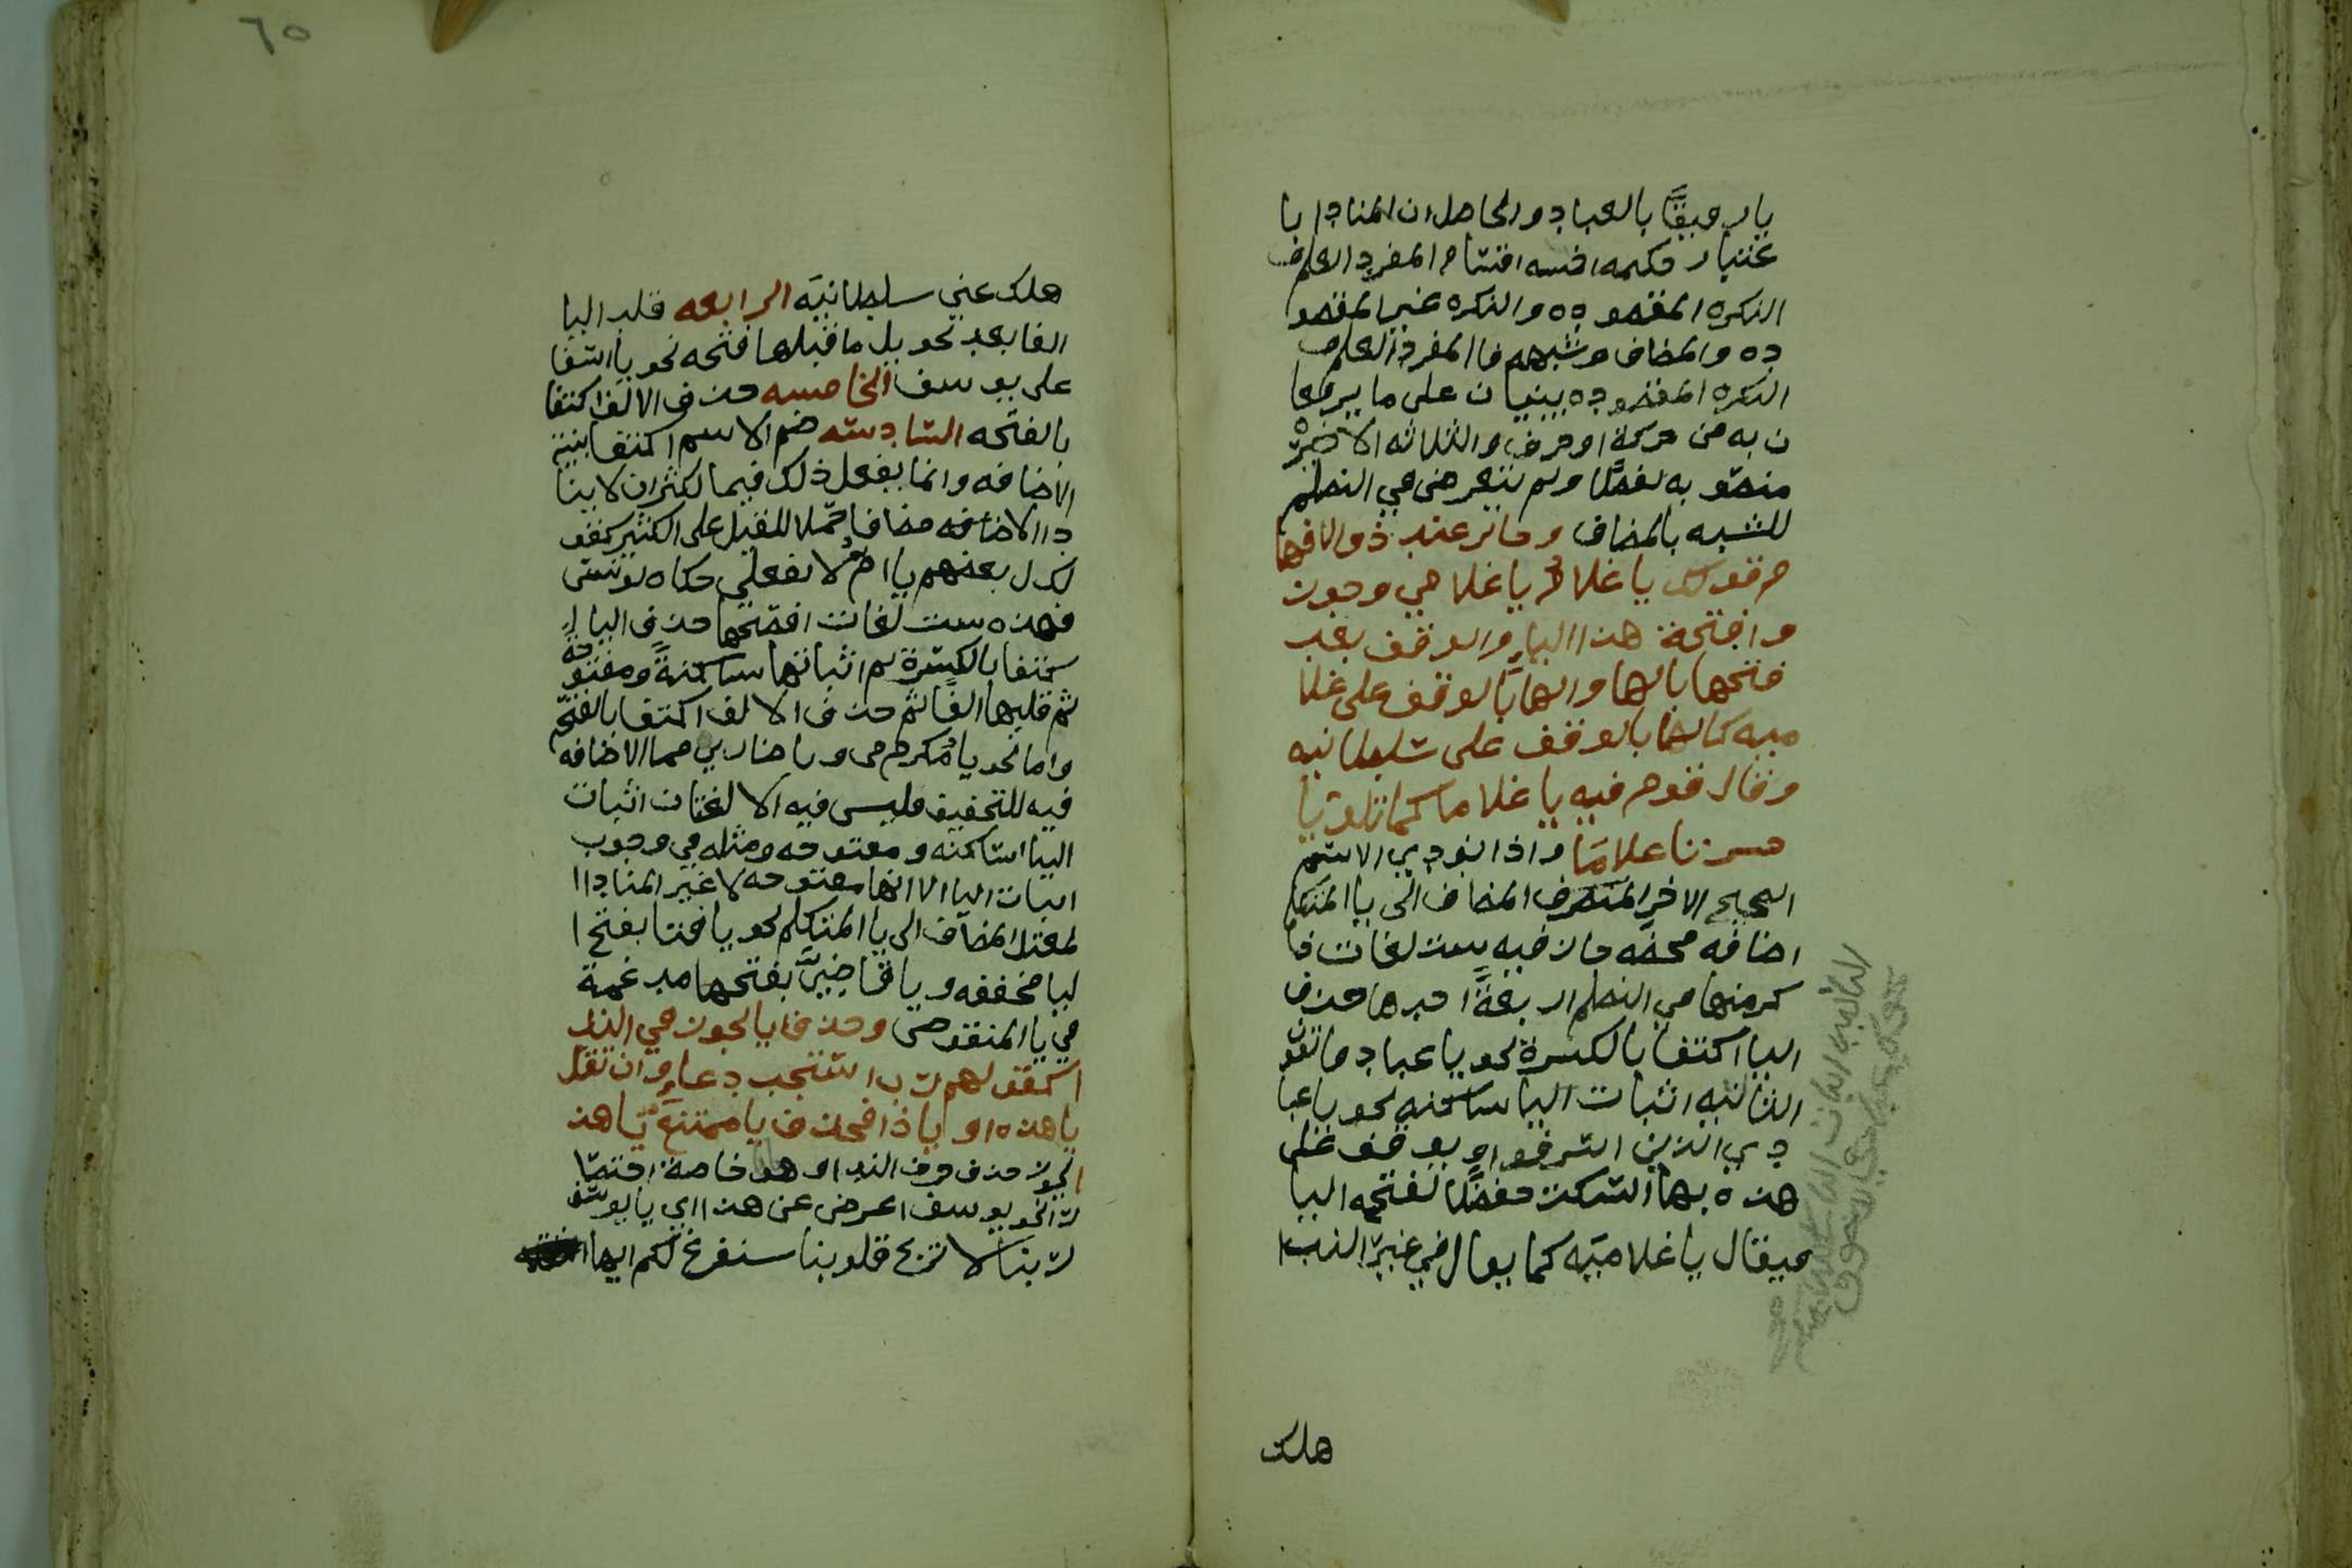 يا رفيقًا بالعباد والحاصل ان المنادا با
عتبار حكمه خمسه اقسام المفرد العلم و
النكره المقصوده والنكره غير المقصو
ده والمضاف وشبهه فا المفرد العلم و
النكره المقصوده يبنيان على ما يرفعا
ن به من حركة او حرف والثلاثه الاخيرة
منصوبه لفظًا ولم يتعرض في النظم
للشبه بالمضاف وجائز عند ذو الافها
م قولك يا غلام يا غلامي وجوز
وا فتحة هذا الياء والوقف بعد
فتحها بالها والها بالوقف على غلا
ميه كالها بالوقف على سلطانيه
وقال قوم فيه يا غلاما كما تلوا يا
حسرتا علاما واذا نودي الاسم
الصحيح الاخر المتصرف المضاف الى يا المتكلم
اضافه محضه جاز فيه ست لغات ذ
كر منها في النظم اربعةً احدها حذف
اليا اكتفا بالكسرة نحو يا عباد فاتقون
الثانيه اثبات اليا ساكنه نحو يا عبا
دي الذين اسرفوا ويوقف على
هذه بها السكت حفظًا لفتحه اليا
فيقال يا غلاميه كما يقال في غير الندا
هلك
٦٥
هلك عني سلطانيه الرابعه قلب اليا
الفا بعد تحويل ما قبلها فتحه نحو يا اسفا
على يوسف الخامسه حذف الالف اكتفا
بالفتحه السادسه ضم الاسم اكتفا بنية
الاضافه وانما يفعل ذلك فيما يكثر ان لا ينا
دا الا مضافا حملا للقليل على الكثير كقو
ل بعضهم يا امُ لا تفعلي حكاه يونس
فهذه ست لغات افصحها حذف اليا ا
كتفا بالكسرة ثم اثباتها ساكنةً ومفتوحة
ثم قلبها الفًا ثم حذف الالف اكتفا بالفتحه
واما نحو يا مكرمي ويا ضاربي مما الاضافه
فيه للتخفيف فليس فيه الا لغتان اثبات
اليا ساكنه ومفتوحه ومثله في وجوب
اثبات اليا الا انها مفتوحه لا غير المنادا ا
لمعتل المضاف الى يا المتكلم نحو يا فتا بفتح ا
ليا مخففه ويا قاضيَّ بفتحها مدغمة
في يا المنقوص وحذف يا يجوز في الندا
كقولهم رب استجب دعاء وان تقل
يا هذه او يا ذا فحذف يا ممتنع يا هذا
يجوز حذف حرف الندا وهو خاصة اختصا
را نحو يوسف اعرض عن هذا اي يا يوسف
ربنا لا تزغ قلوبنا سنفرغ لكم ايها